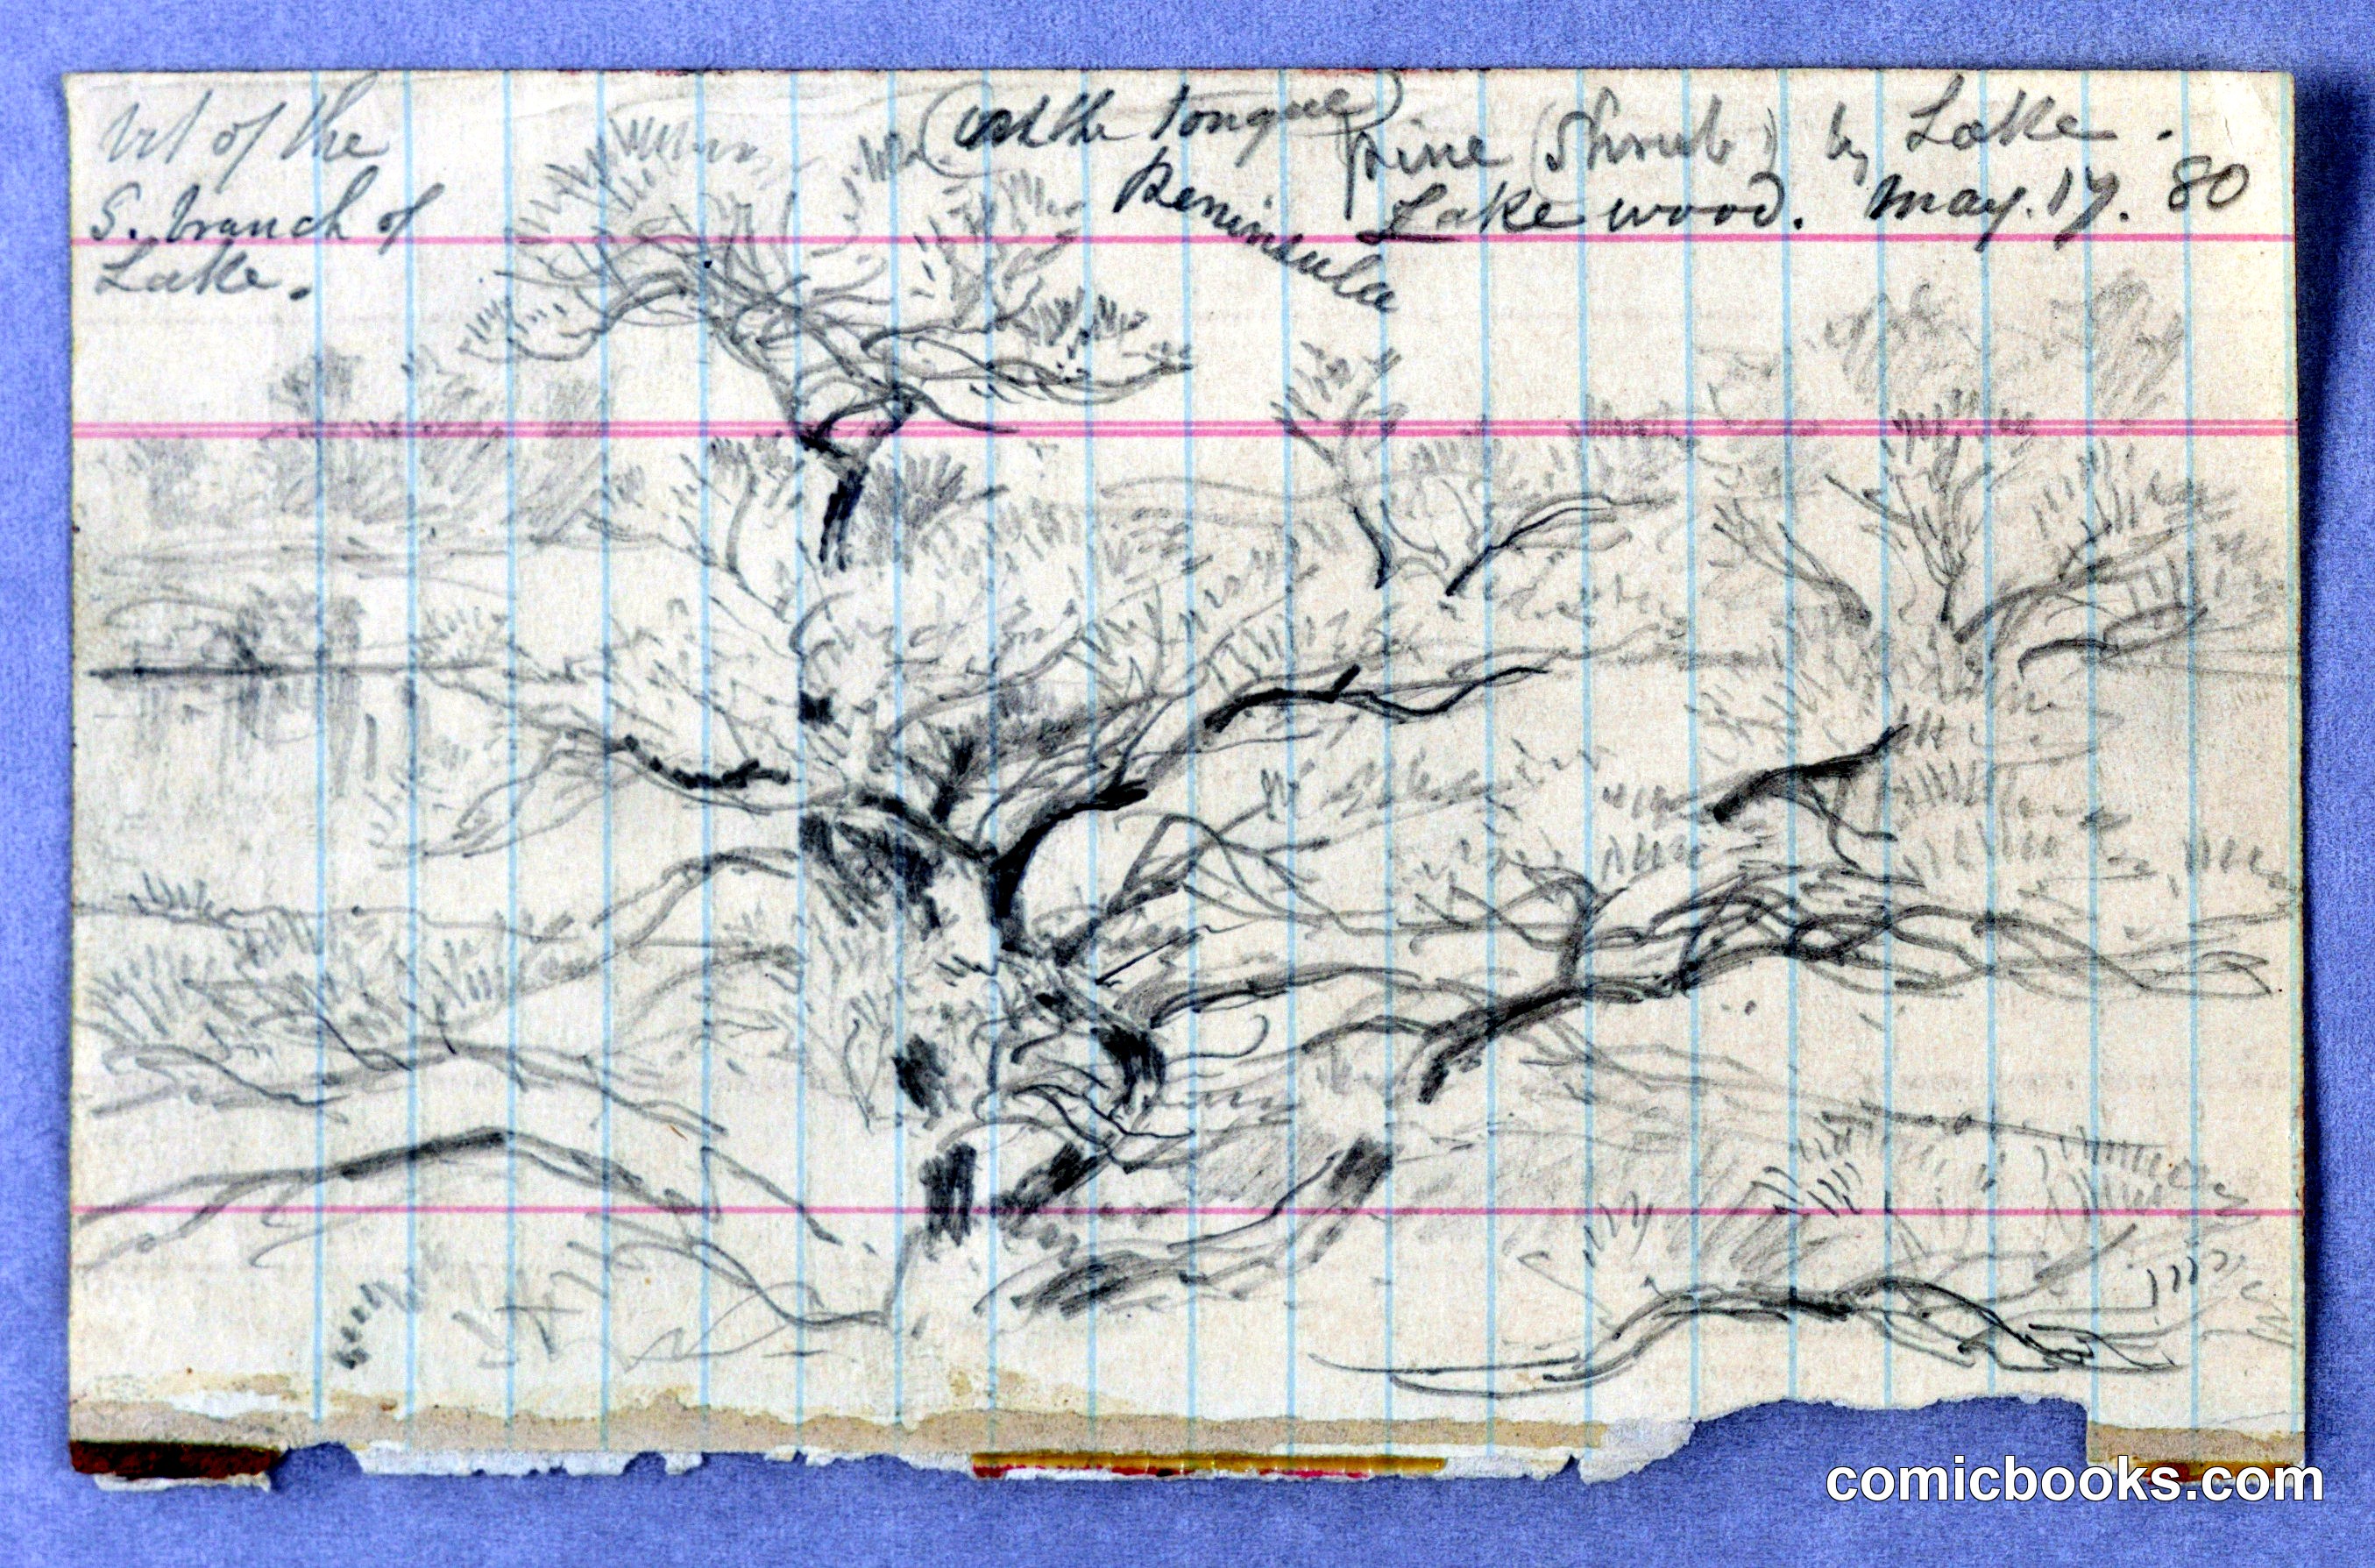 of the
S. branch of
Lake.
(at the tongue)
Peninsula
pine (Shrub) by Lake.
Lakewood. May. 17. 80
comicbooks.com